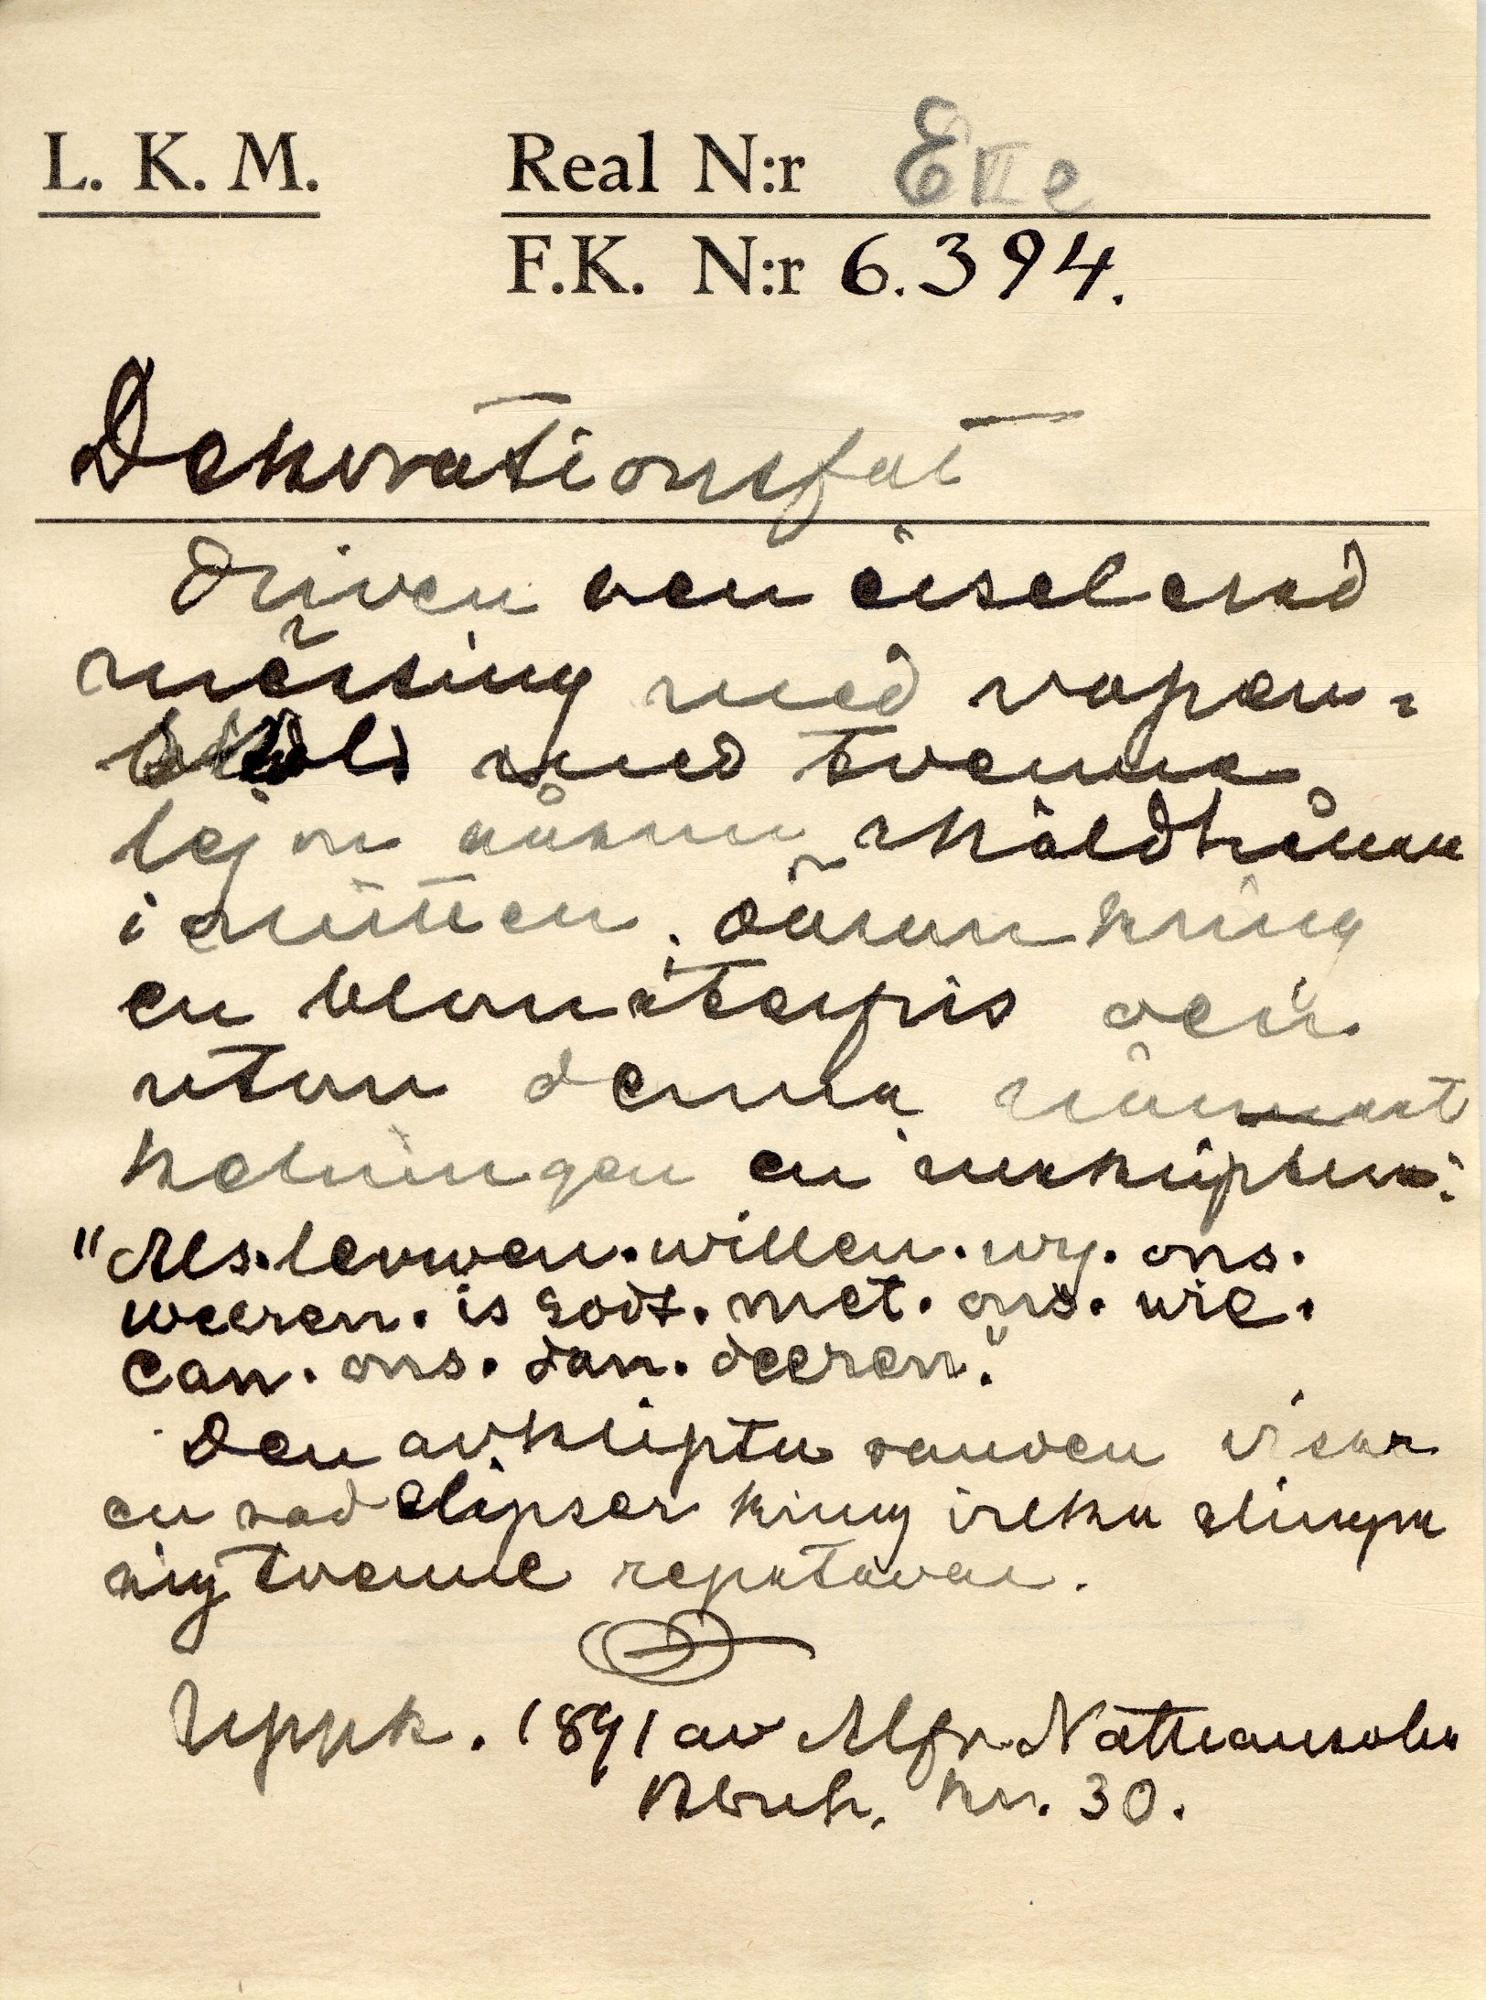 L. K. M. Real N:r E VII e
F.K. N:r 6.394.
Dekorationsfat
driven och ciselerad
mässing med vapen-
sköld med tvenne
lejon såsom sköldhållare
i mitten. därom kring
en blomsterfris och
utom denna närmast
hålningen en inskription:
"Als. leuwen. willen. wy. ons.
weeren. is godt. met. ons. wie.
can. ons. dan. deeren."
Den avskiljda randen visar
en rad elipser kring vilka slingra
sig tvenne repstavar.
Uppk. 1891 av Alfr. Nathanson
Kbreh. kr. 30.